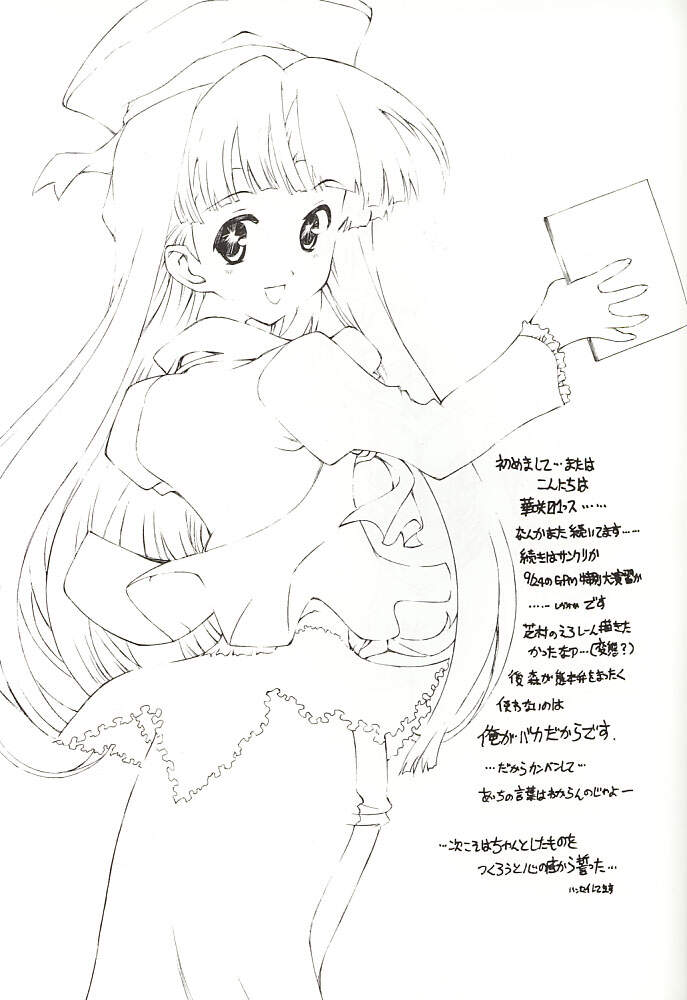 初めまして…または
こんにちは
華咲01っス……
なんかまた続いてます……
続きはサンクリか
9/24のGPM特別大演習か
……です
芝村のえろしーん描きた
かったなァ…(変態?)
後森が熊本弁をまったく
使わないのは
俺がバカだからです.
…だからカンベンして…
あっちの言葉はわからんのじゃよー
…次こそはちゃんとしたものを
つくろうと心の底から誓った…
ハンセイしてます